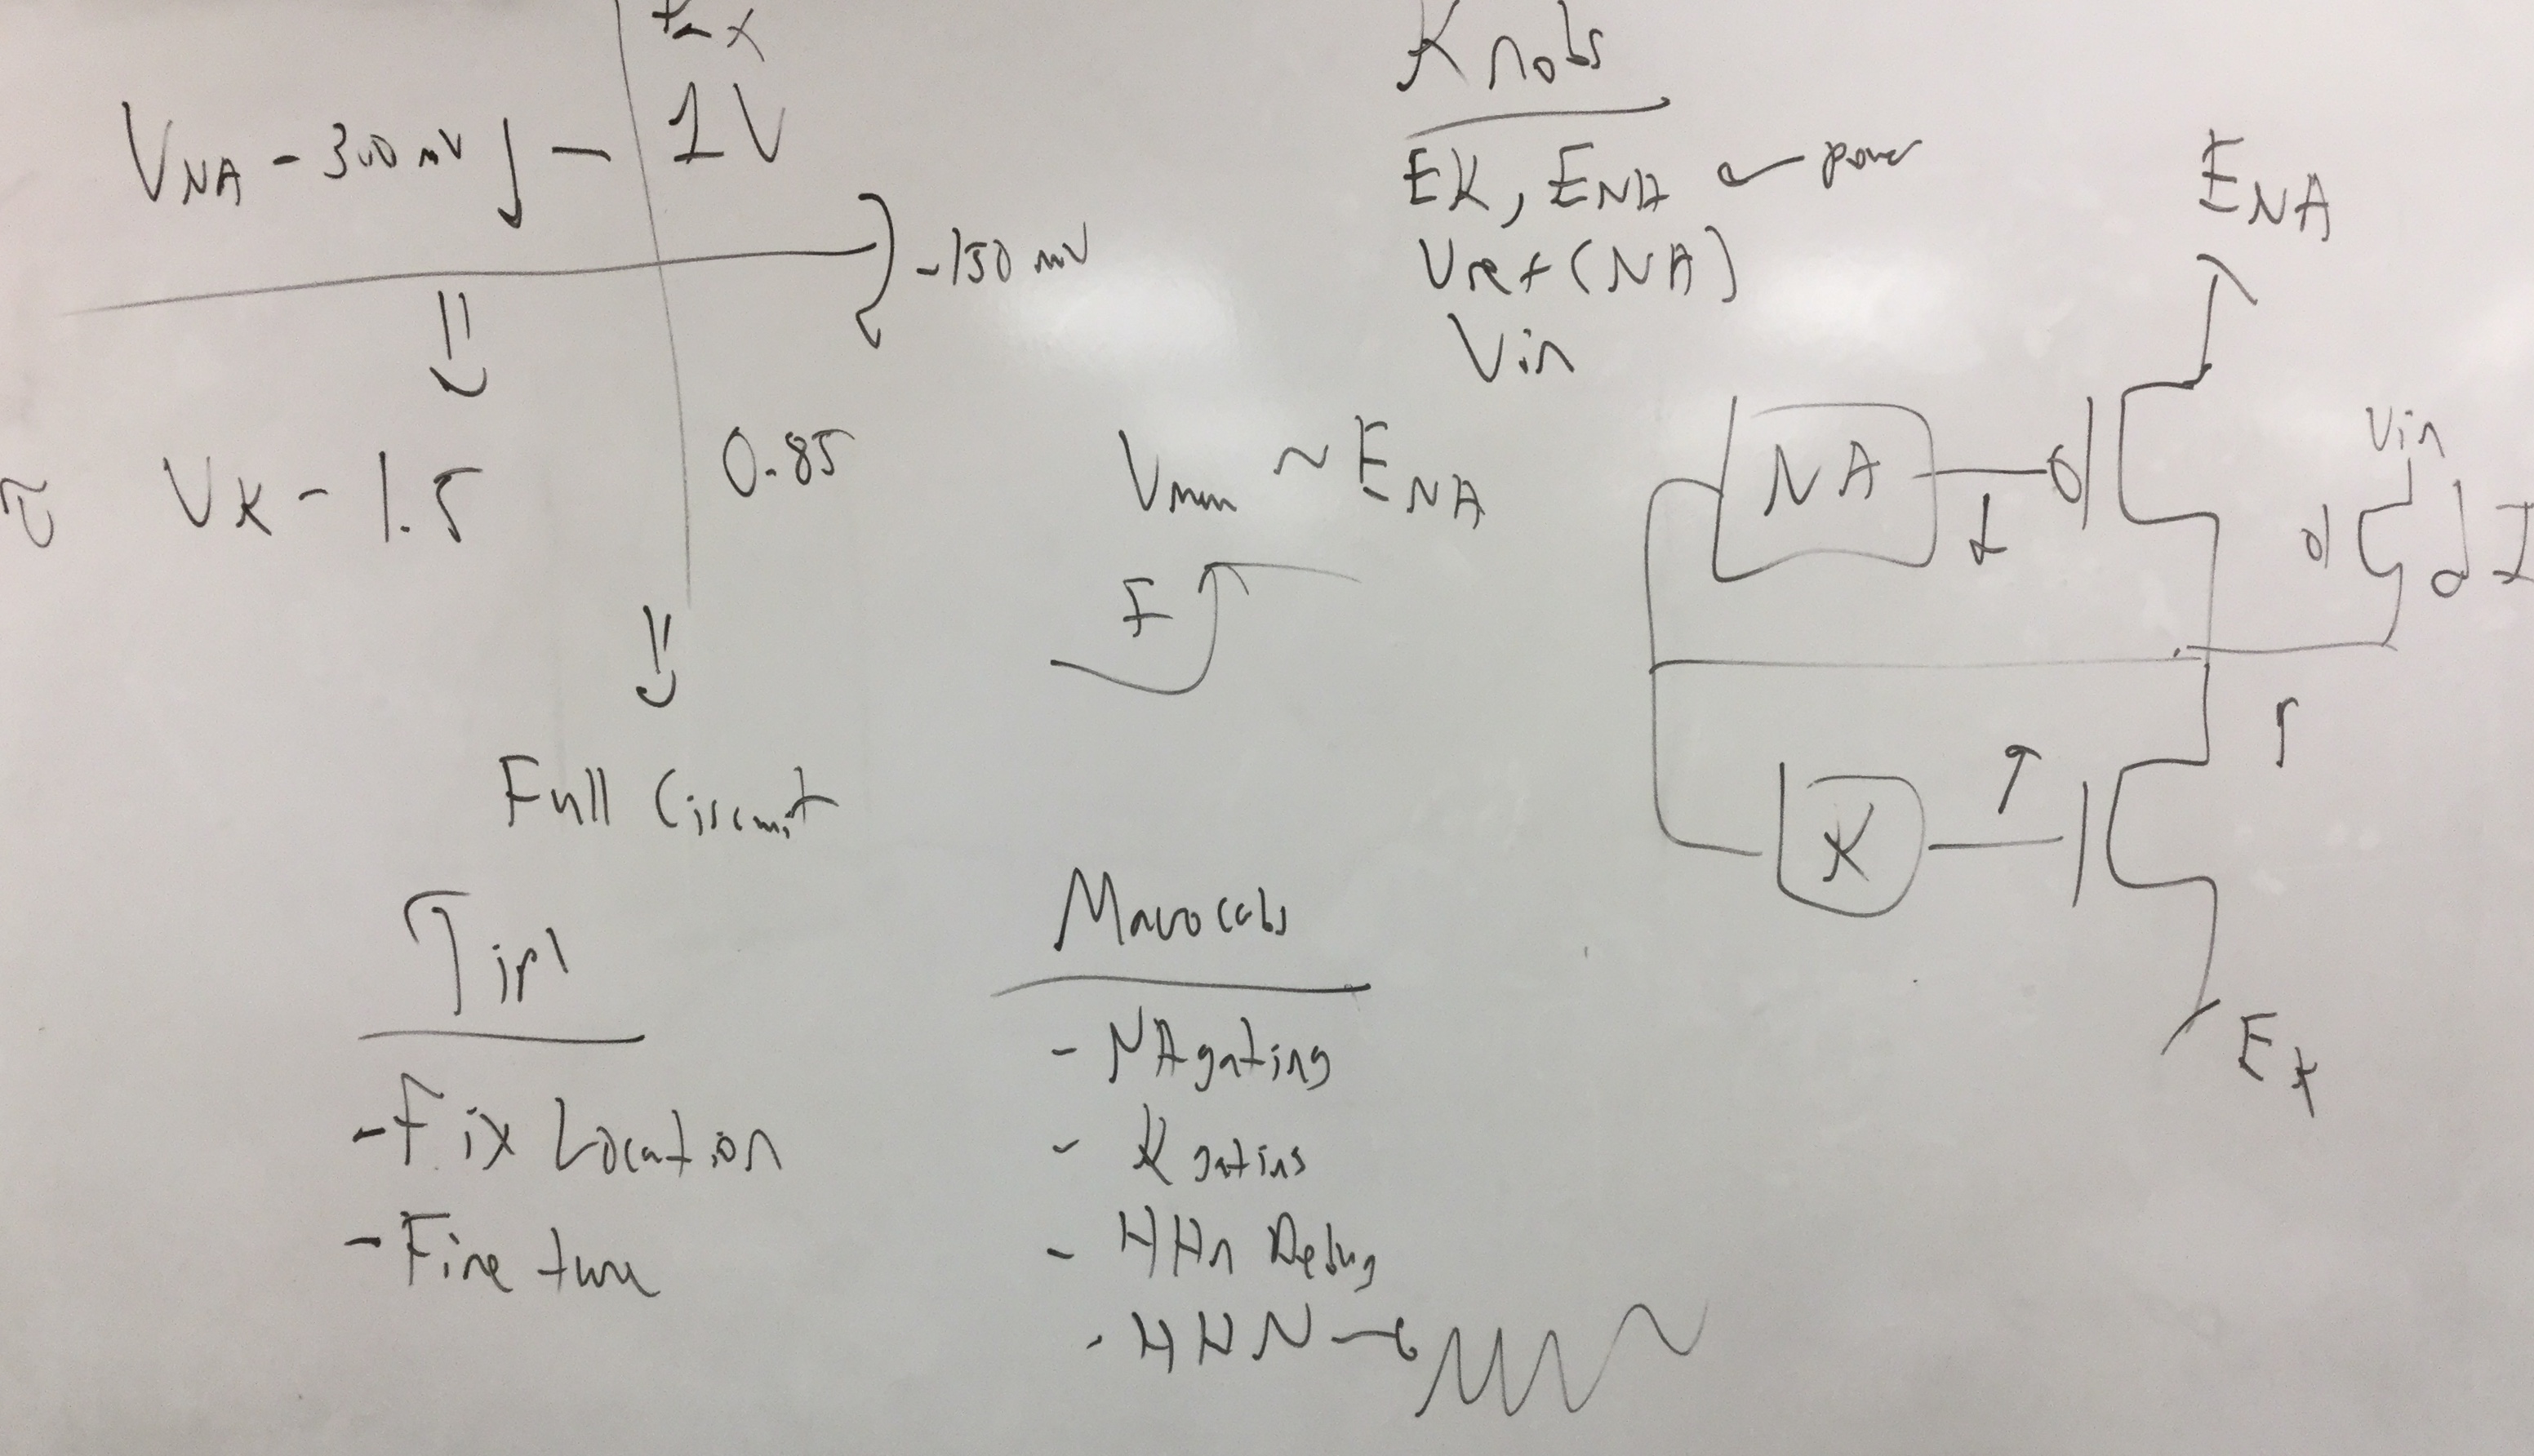 VNA - 300 mV
1V
-150 mV
τ VK - 1.5
0.85
Full Circuit
Knobs
EK, ENA ← power
Vref (NA)
Vin
Vmm ~ ENA
F
ENA
Vin
NA
I
K
EK
- Fix Location
- Fine tune
- NA gating
- K gating
- HHn Debug
- HHN →